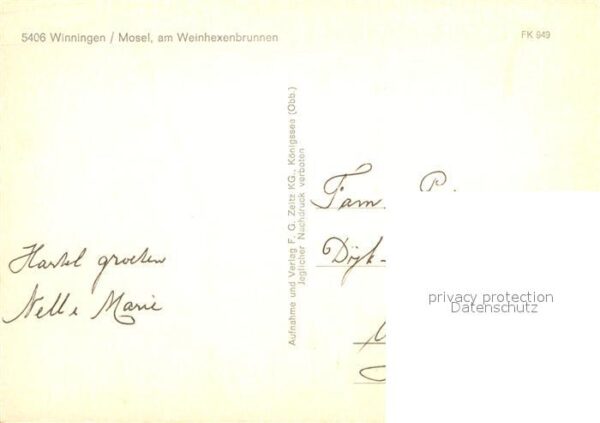 5406 Winningen / Mosel, am Weinhexenbrunnen
FK 949
Hartel groeten
Nelle Marie
Aufnahme und Verlag F. G. Zeitz KG., Königssee (Obb.)
Jeglicher Nachdruck verboten
Fam. P.
Dijk-
privacy protection
Datenschutz